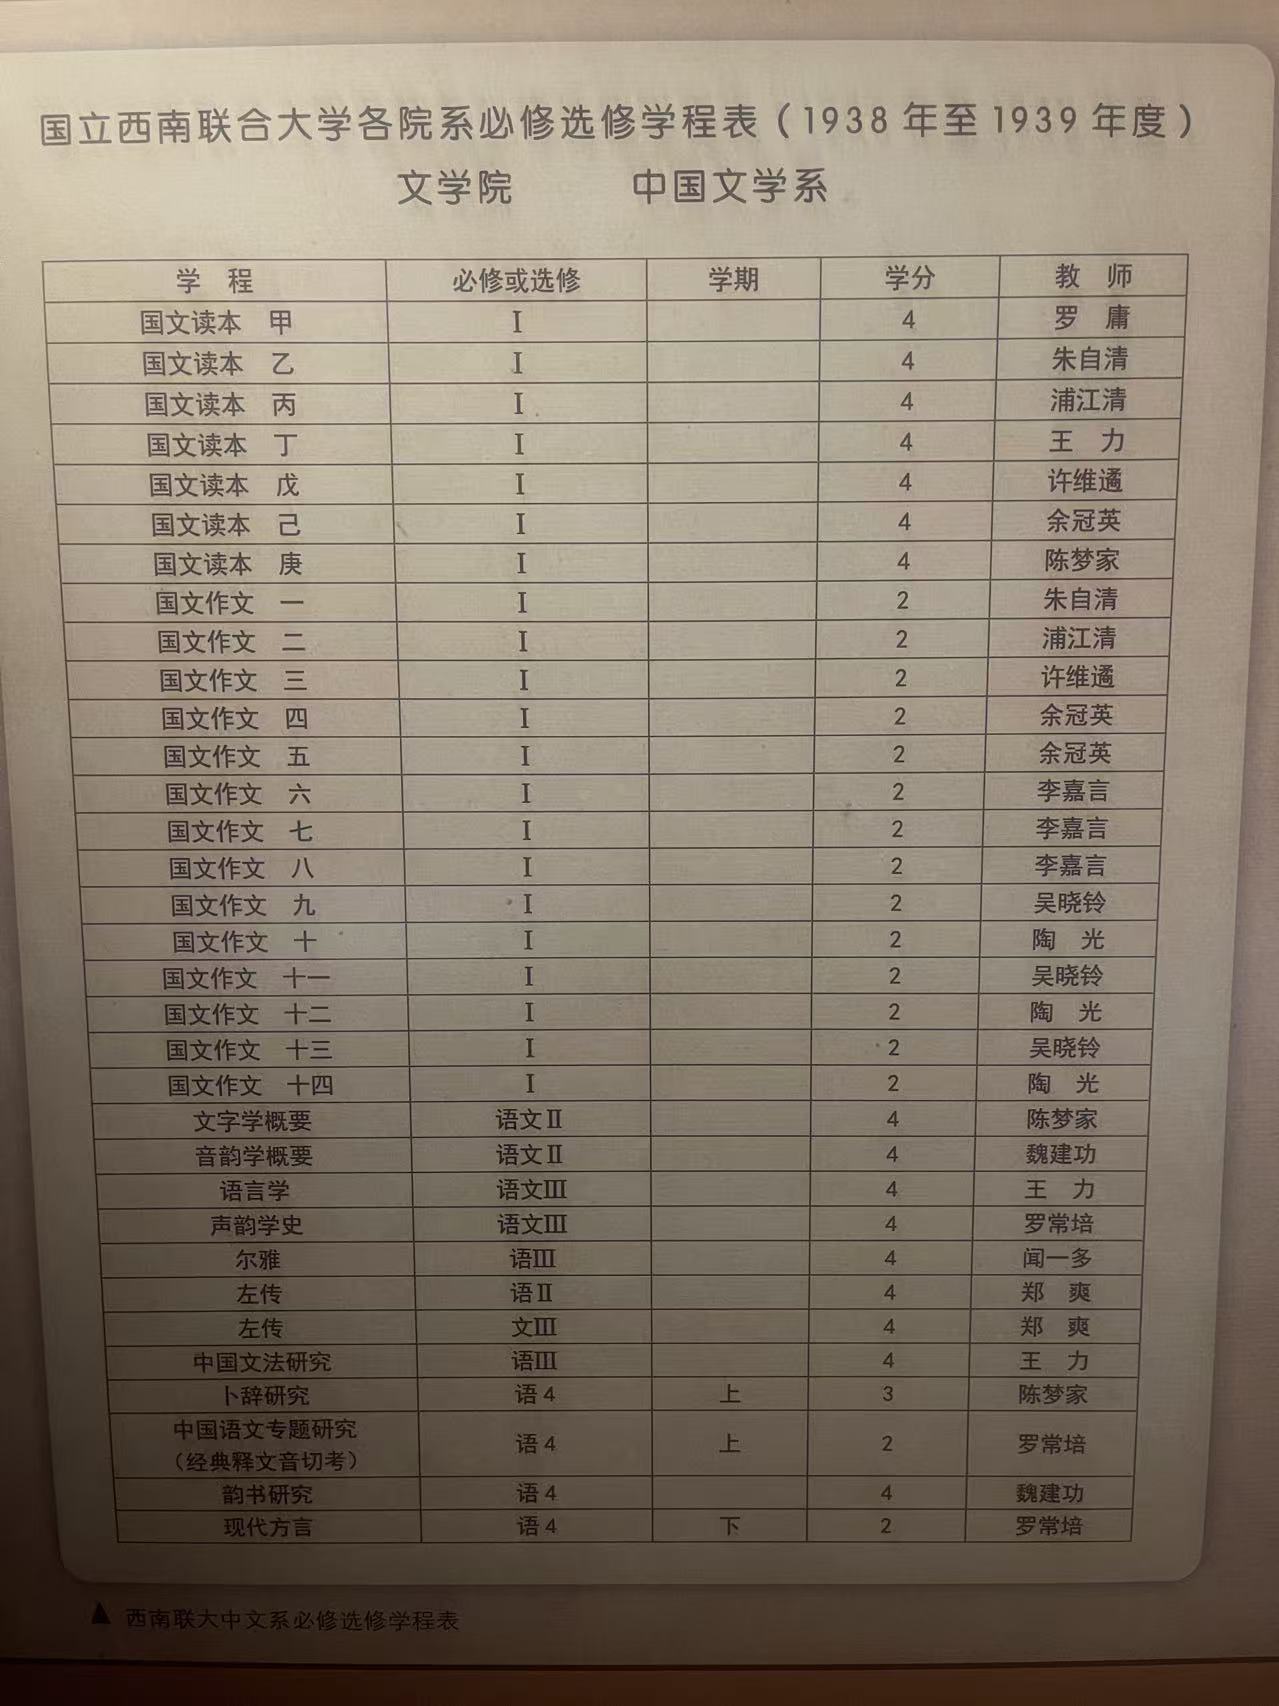 国立西南联合大学各院系必修选修学程表（1938 年至 1939 年度）
文学院 中国文学系
学 程 必修或选修 学期 学分 教 师
国文读本 甲 Ⅰ 4 罗 庸
国文读本 乙 Ⅰ 4 朱自清
国文读本 丙 Ⅰ 4 浦江清
国文读本 丁 Ⅰ 4 王 力
国文读本 戊 Ⅰ 4 许维遹
国文读本 己 Ⅰ 4 余冠英
国文读本 庚 Ⅰ 4 陈梦家
国文作文 一 Ⅰ 2 朱自清
国文作文 二 Ⅰ 2 浦江清
国文作文 三 Ⅰ 2 许维遹
国文作文 四 Ⅰ 2 余冠英
国文作文 五 Ⅰ 2 余冠英
国文作文 六 Ⅰ 2 李嘉言
国文作文 七 Ⅰ 2 李嘉言
国文作文 八 Ⅰ 2 李嘉言
国文作文 九 Ⅰ 2 吴晓铃
国文作文 十 Ⅰ 2 陶 光
国文作文 十一 Ⅰ 2 吴晓铃
国文作文 十二 Ⅰ 2 陶 光
国文作文 十三 Ⅰ 2 吴晓铃
国文作文 十四 Ⅰ 2 陶 光
文字学概要 语文Ⅱ 4 陈梦家
音韵学概要 语文Ⅱ 4 魏建功
语言学 语文Ⅲ 4 王 力
声韵学史 语文Ⅲ 4 罗常培
尔雅 语Ⅲ 4 闻一多
左传 语Ⅱ 4 郑 爽
左传 文Ⅲ 4 郑 爽
中国文法研究 语Ⅲ 4 王 力
卜辞研究 语 4 上 3 陈梦家
中国语文专题研究
（经典释文音切考） 语 4 上 2 罗常培
韵书研究 语 4 4 魏建功
现代方言 语 4 下 2 罗常培
▲ 西南联大中文系必修选修学程表